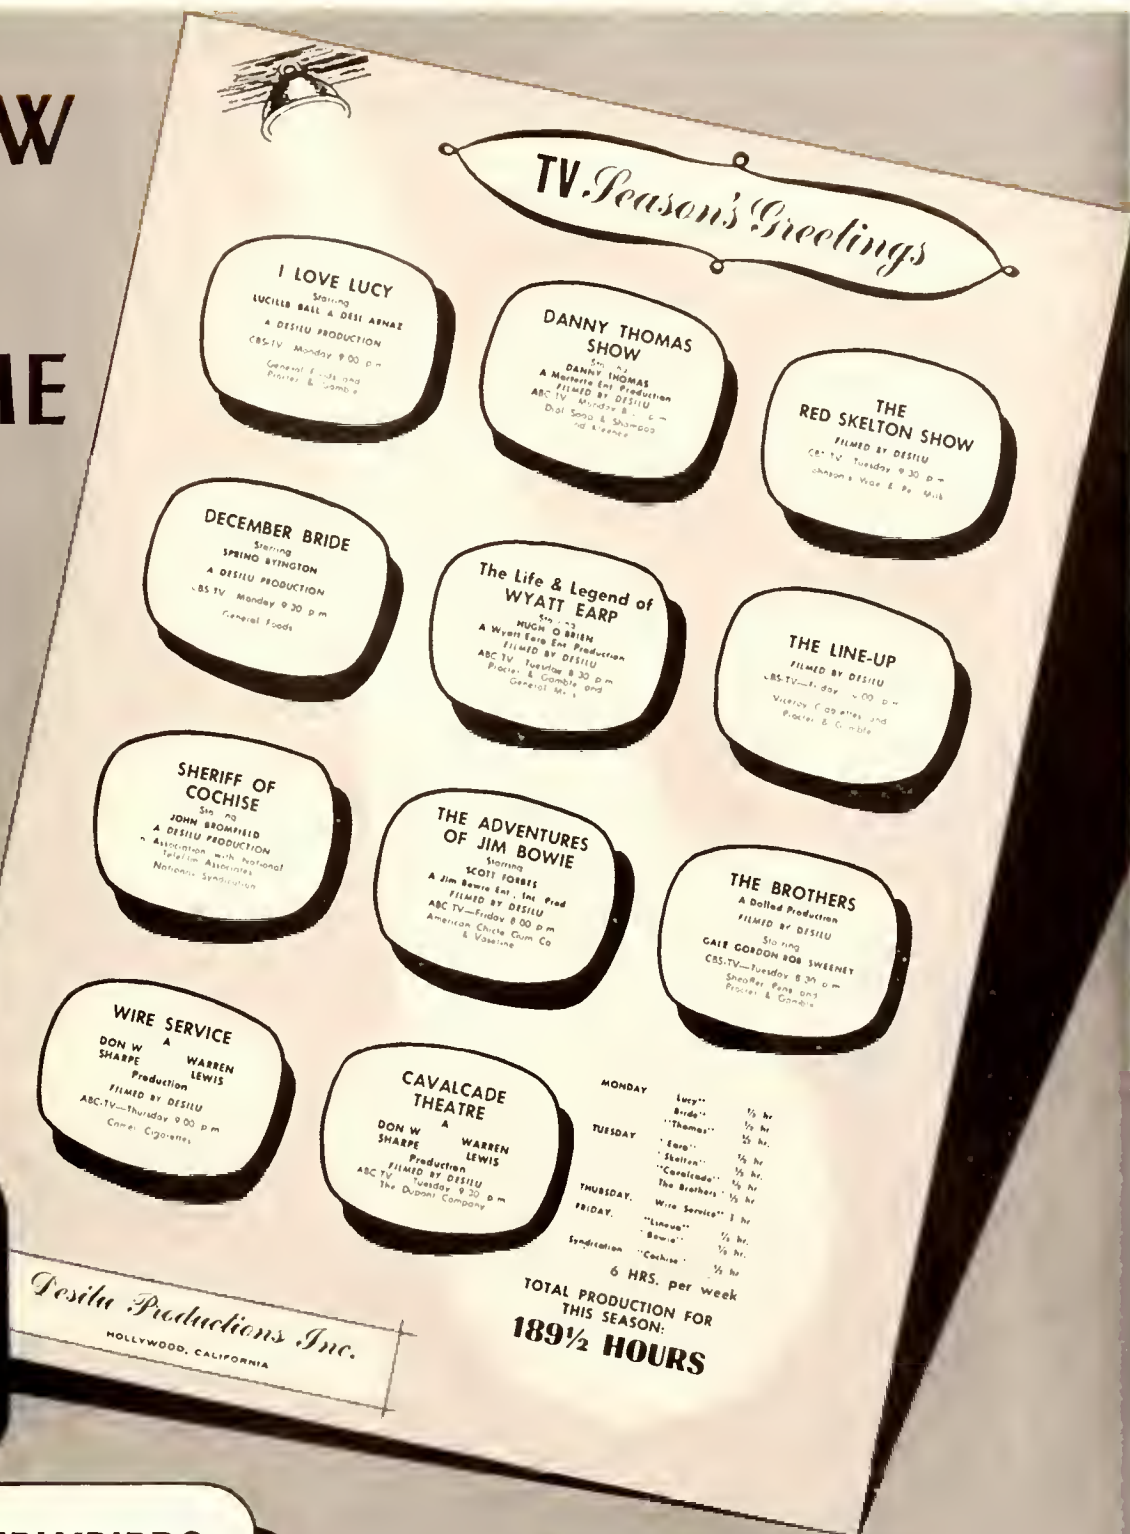 W
ME
TV Season's Greetings
I LOVE LUCY
Starring
LUCILLE BALL & DESI ARNAZ
A DESILU PRODUCTION
CBS-TV Monday 9:00 p m
General Foods and
Procter & Gamble
DANNY THOMAS
SHOW
Starring
DANNY THOMAS
A Marterto Ent Production
FILMED BY DESILU
ABC TV Monday 8 p m
Dial Soap & Shampoo
and Kleenex
THE
RED SKELTON SHOW
FILMED BY DESILU
CBS TV Tuesday 9 30 p m
Johnson's Wax & Pet Milk
DECEMBER BRIDE
Starring
SPRING BYINGTON
A DESILU PRODUCTION
CBS TV Monday 9 30 p m
General Foods
The Life & Legend of
WYATT EARP
Starring
HUGH O BRIEN
A Wyatt Earp Ent Production
FILMED BY DESILU
ABC TV Tuesday 8 30 p m
Procter & Gamble and
General Mills
THE LINE-UP
FILMED BY DESILU
CBS-TV—Friday :00 p m
Viceroy Cigarettes and
Procter & Gamble
SHERIFF OF
COCHISE
Starring
JOHN BROMFIELD
A DESILU PRODUCTION
in Association with National
Telefilm Associates
National Syndication
THE ADVENTURES
OF JIM BOWIE
Starring
SCOTT FORBES
A Jim Bowie Ent., Inc. Prod
FILMED BY DESILU
ABC TV—Friday 8 00 p m
American Chicle Gum Co
& Vaseline
THE BROTHERS
A Dolled Production
FILMED BY DESILU
Starring
GALE GORDON BOB SWEENEY
CBS-TV—Tuesday 8 30 p m
Sheaffer Pens and
Procter & Gamble
WIRE SERVICE
A
DON W WARREN
SHARPE LEWIS
Production
FILMED BY DESILU
ABC-TV—Thursday 9 00 p m
Camel Cigarettes
CAVALCADE
THEATRE
A
DON W WARREN
SHARPE LEWIS
Production
FILMED BY DESILU
ABC TV Tuesday 9 30 p m
The Dupont Company
MONDAY Lucy" ½ hr
Bride" ½ hr
"Thomas" ½ hr.
TUESDAY "Earp" ½ hr
"Skelton" ½ hr.
"Cavalcade" ½ hr
The Brothers" ½ hr
THURSDAY. Wire Service" 1 hr
FRIDAY. "Lineup" ½ hr.
"Bowie" ½ hr.
Syndication "Cochise" ½ hr
6 HRS. per week
TOTAL PRODUCTION FOR
THIS SEASON:
189½ HOURS
Desilu Productions Inc.
HOLLYWOOD, CALIFORNIA